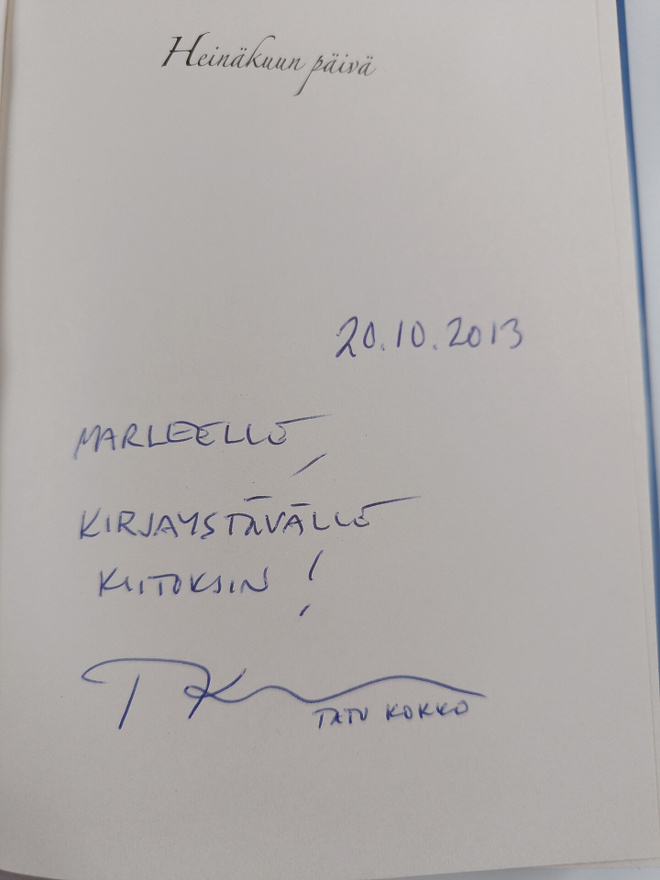 Heinäkuun päivä
20.10.2013
MARLEELLE,
KIRJAYSTÄVÄLLE
KIITOKSIN!
TATU KOKKO